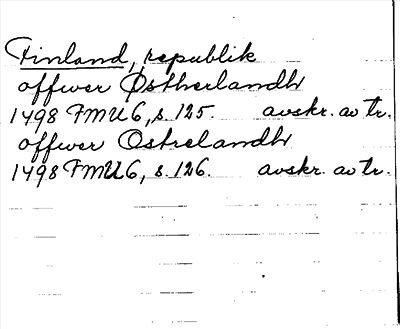 Finland, republik
offwer Østherlandh
1498 FMU 6, s. 125. avskr. av tr.
offwer Ostrelandh
1498 FMU 6, s. 126. avskr. av tr.